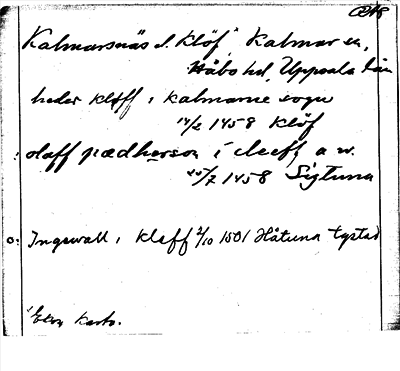 Kalmarsnäs l. Klöf¹ Kalmar sn,
Håbo hd, Uppsala län
heder kløff i kalmarne sogn
14/2 1458 Klöf
: olaff pædherson i cleeff a w.
25/7 1458 Sigtuna
o: Ingewall i kleff 2/10 1501 Håtuna tgstad
¹ Ekon. karta.